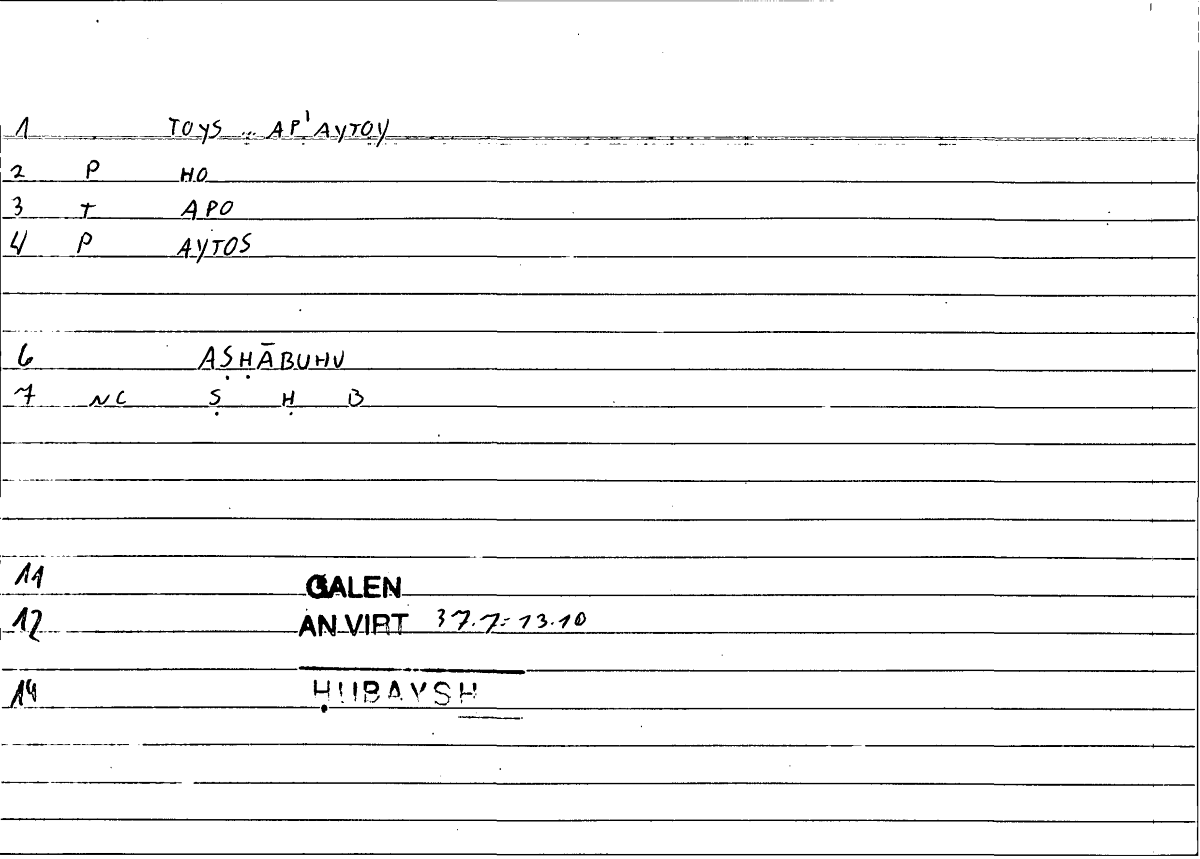 1 TOYS ... AP'AYTOY
2 P HO
3 T APO
4 P AYTOS
6 AṢḤĀBUHU
7 NC Ṣ Ḥ B
11 GALEN
12 AN VIRT 37.7 = 13.10
14 ḤUBAYSH